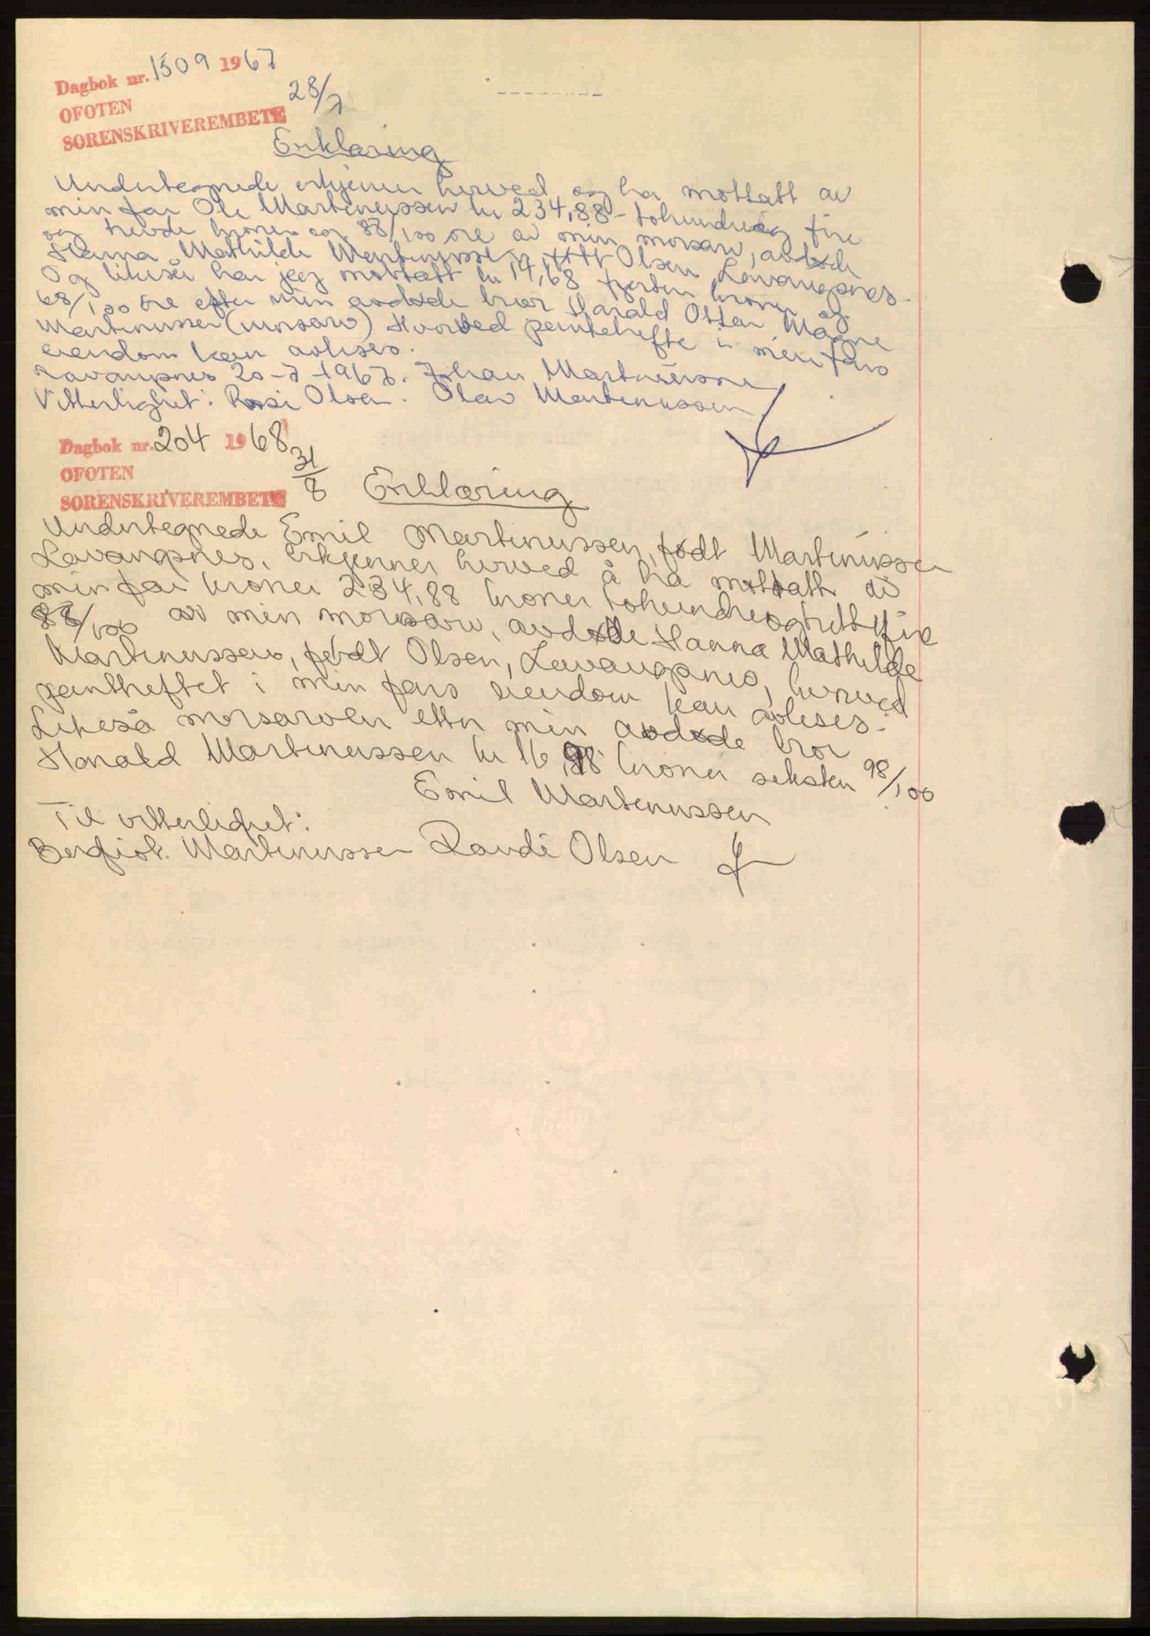 Dagbok nr. 1509 1967
OFOTEN
28/7
SORENSKRIVEREMBETE
Erklæring
Undertegnede erkjenner herved og ha mottatt av
min far Ole Martinussen kr 234,88 - tohundreog fire
og tredve kroner og 88/100 øre av min morsarv, avdøde
Hanna Mathilde Martinussen født Olsen, Lavangsnes.
Og likeså har jeg mottatt kr 14,68 fjorten kroner og
68/100 øre efter min avdøde bror Harald Otter Magne
Martinussen (morsarv) Hvorved pantehefte i min fars
eiendom kan avleses.
Lavangsnes 20-7-1967. Johan Martinussen
Vitterlighet: Olsen. Olav Martinussen
Dagbok nr. 204 1968
OFOTEN
31/8
SORENSKRIVEREMBETE
Erklæring
Undertegnede Emil Martinussen, født Martinussen
Lavangsnes, erkjenner herved å ha mottatt av
min far kroner 234,88 kroner tohundreogtrettifire
88/100 av min morsarv, avdøde Hanna Mathilde
Martinussen, født Olsen, Lavangsnes, herved
pantheftet i min fars eiendom kan avleses.
Likeså morsarven etter min avdøde bror
Harald Martinussen kr 16,98 kroner seksten 98/100
Emil Martinussen
Til vitterlighet:
Bergliot Martinussen Randi Olsen